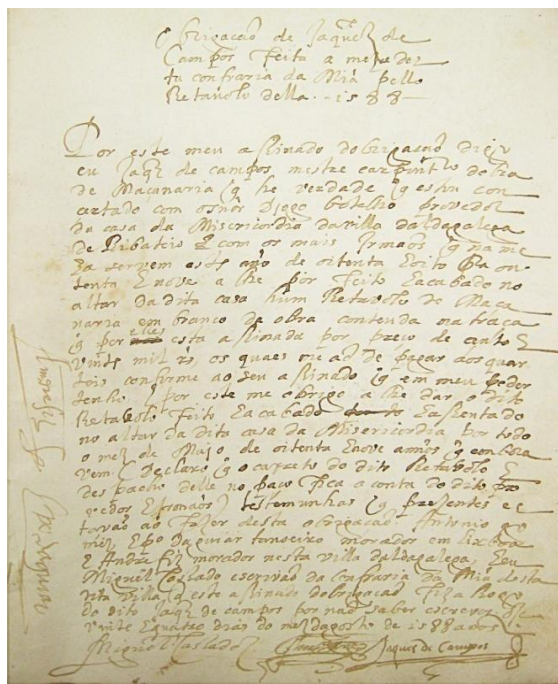 obrigação de Jaq de
Campos feita a meza des
ta confraria da Mia pello
Retavolo della. - 1588 -
Por este meu asinado dobrigação digo
eu Jaqz de campos mestre carpintro dobra
de Maçanaria q he verdade q estou con
certado com o snor Diogo botelho provedor
da casa da Misericordia da villa daldagalega
de Ribatejo E com os mais Irmaos q na me
za servem este ano de oitenta Eoito pa oi
tenta E nove a lhe por feito Eacabado no
altar da dita casa hum Retavolo de Maça
naria em branco da obra contenda na traça
q por elles esta asinada por preço de cento E
vinte mil rs, os quaes me ad de pagar aos quar
teis conforme ao seu asinado q em meu poder
tenho E por este me obrigo a lhe dar o dito
Retavolo feito Eacabado Easentado
no altar da dita casa da Misericordia por todo
o mez de Majo de oitenta Enove annos q embora
vem Declaro q o carreto do dito Retavolo E
despacho delle no paço fica a conta do dito pro
vedor E Irmãos testemunhas q prezentes es
tavão ao fazer desta obrigação Antonio go
mez E po daguiar torneiro morador em lixboa
E Andre fiz morador nesta villa daldagalega, Eeu
Miguel Taslado escrivão da confraria da Mia desta
dita villa q este asinado dobrigação fiz a Rogo
do dito Jaqz de campos por não saber escrever
vinte E quatro dias do mez dagosto de 1588 anos
Miguel Taslado Jaques de Campos